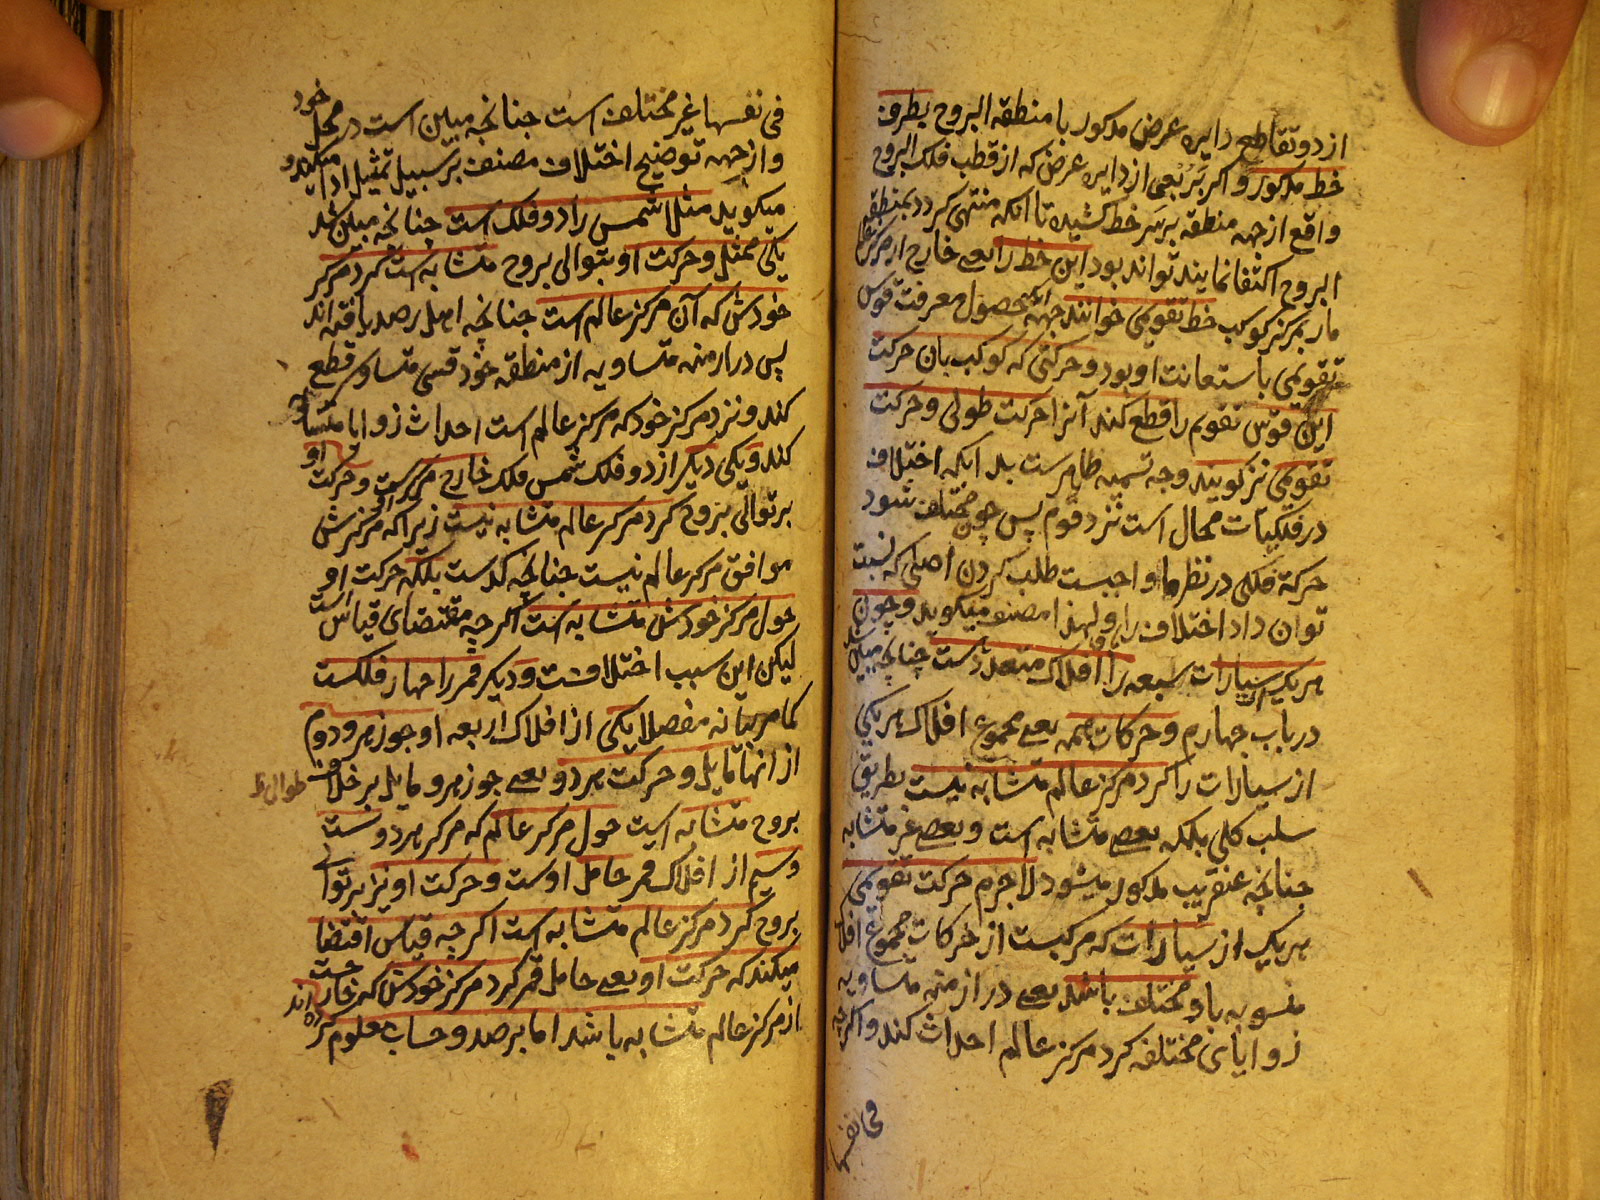 از دو تقاطع دایره عرض مذکور با منطقة البروج بطرف
خط مذکور و اکر بربعی از دایره عرض که از قطب فلک البروج
واقع از جهه منطقه بر سر خط کشیده تا انکه منتهی کردد بمنطقه
البروج اکتفا نمایند تواند بود این خط را یعنی خارج از مرکز عالم
مار بمرکز کوکب خط تقویمی خوانند جهة انکه حصول معرفت قوس
تقویمی باستعانت او بود و حرکتی که کوکب بان حرکت
این قوس تقویم را قطع کند آنرا حرکت طولی و حرکت
تقویمی نیز کویند و وجه تسمیه ظاهرست بدانکه اختلاف
در فلکیات محال است نزد قوم پس چون مختلف شود
حرکة فلکی در نظر ما واجبست طلب کردن اصلی که نسبت
توان داد اختلاف را باو و لهذا مصنف میکوید و چون
هر یک از سیارات سبعه را افلاک متعددست چنانچه مبین شد
در باب چهارم و حرکات همه یعنی مجموع افلاک هر یکی
از سیارات را کرد مرکز عالم متشابه نیست بطریق
سلب کلی بلکه بعضی متشابه است و بعضی غیر متشابه
جنانچه عنقریب مذکور میشود لاجرم حرکت تقویمی
هر یک از سیارات که مرکبست از حرکات مجموع افلاک
منسوبه باو مختلف باشد یعنی در ازمنه متساویه
زوایای مختلفه کرد مرکز عالم احداث کند و اکرچه
فی نفسها
فی نفسها غیر مختلف است جنانچه مبین است در محل خود
و از جهه توضیح اختلاف مصنف بر سبیل تمثیل ادا میکند و
میکوید مثلا شمس را دو فلک است جنانچه مبین شد
یکی ممثل و حرکت او بتوالی بروج متشابه است کرد مرکز
خودش که آن مرکز عالم است جنانچه اهل رصد یافته اند
پس در ازمنه متساویه از منطقه خود قسی متساوی قطع
کند و نزد مرکز خود که مرکز عالم است احداث زوایا متساویه
کند و یکی دیکر از دو فلک شمس فلک خارج مرکزست و حرکت او
بر توالی بروج کرد مرکز عالم متشابه نیست زیرا که مرکزش
موافق مرکز عالم نیست جنانچه کذست بلکه حرکت او
حول مرکز خودش متشابه است اکر چه مقتضای قیاس است
لیکن این سبب اختلافست و دیکر قمر را چهار فلکست
کما مر بیانه مفصلا یکی از افلاک اربعه او جوزهر و دوم
از انها مایل و حرکت هر دو یعنی جوزهر و مایل بر خلاف
طوالی ظ
بروج متشابه است حول مرکز عالم که مرکز هر دوست
و سیم از افلاک قمر حامل اوست و حرکت او نیز بر توالی
بروج کرد مرکز عالم متشابه است اکر چه قیاس اقتضا
میکند که حرکت او یعنی حامل قمر کرد مرکز خودش که خارجست
از مرکز عالم متشابه باشد اما برصد و حساب معلوم کرده اند